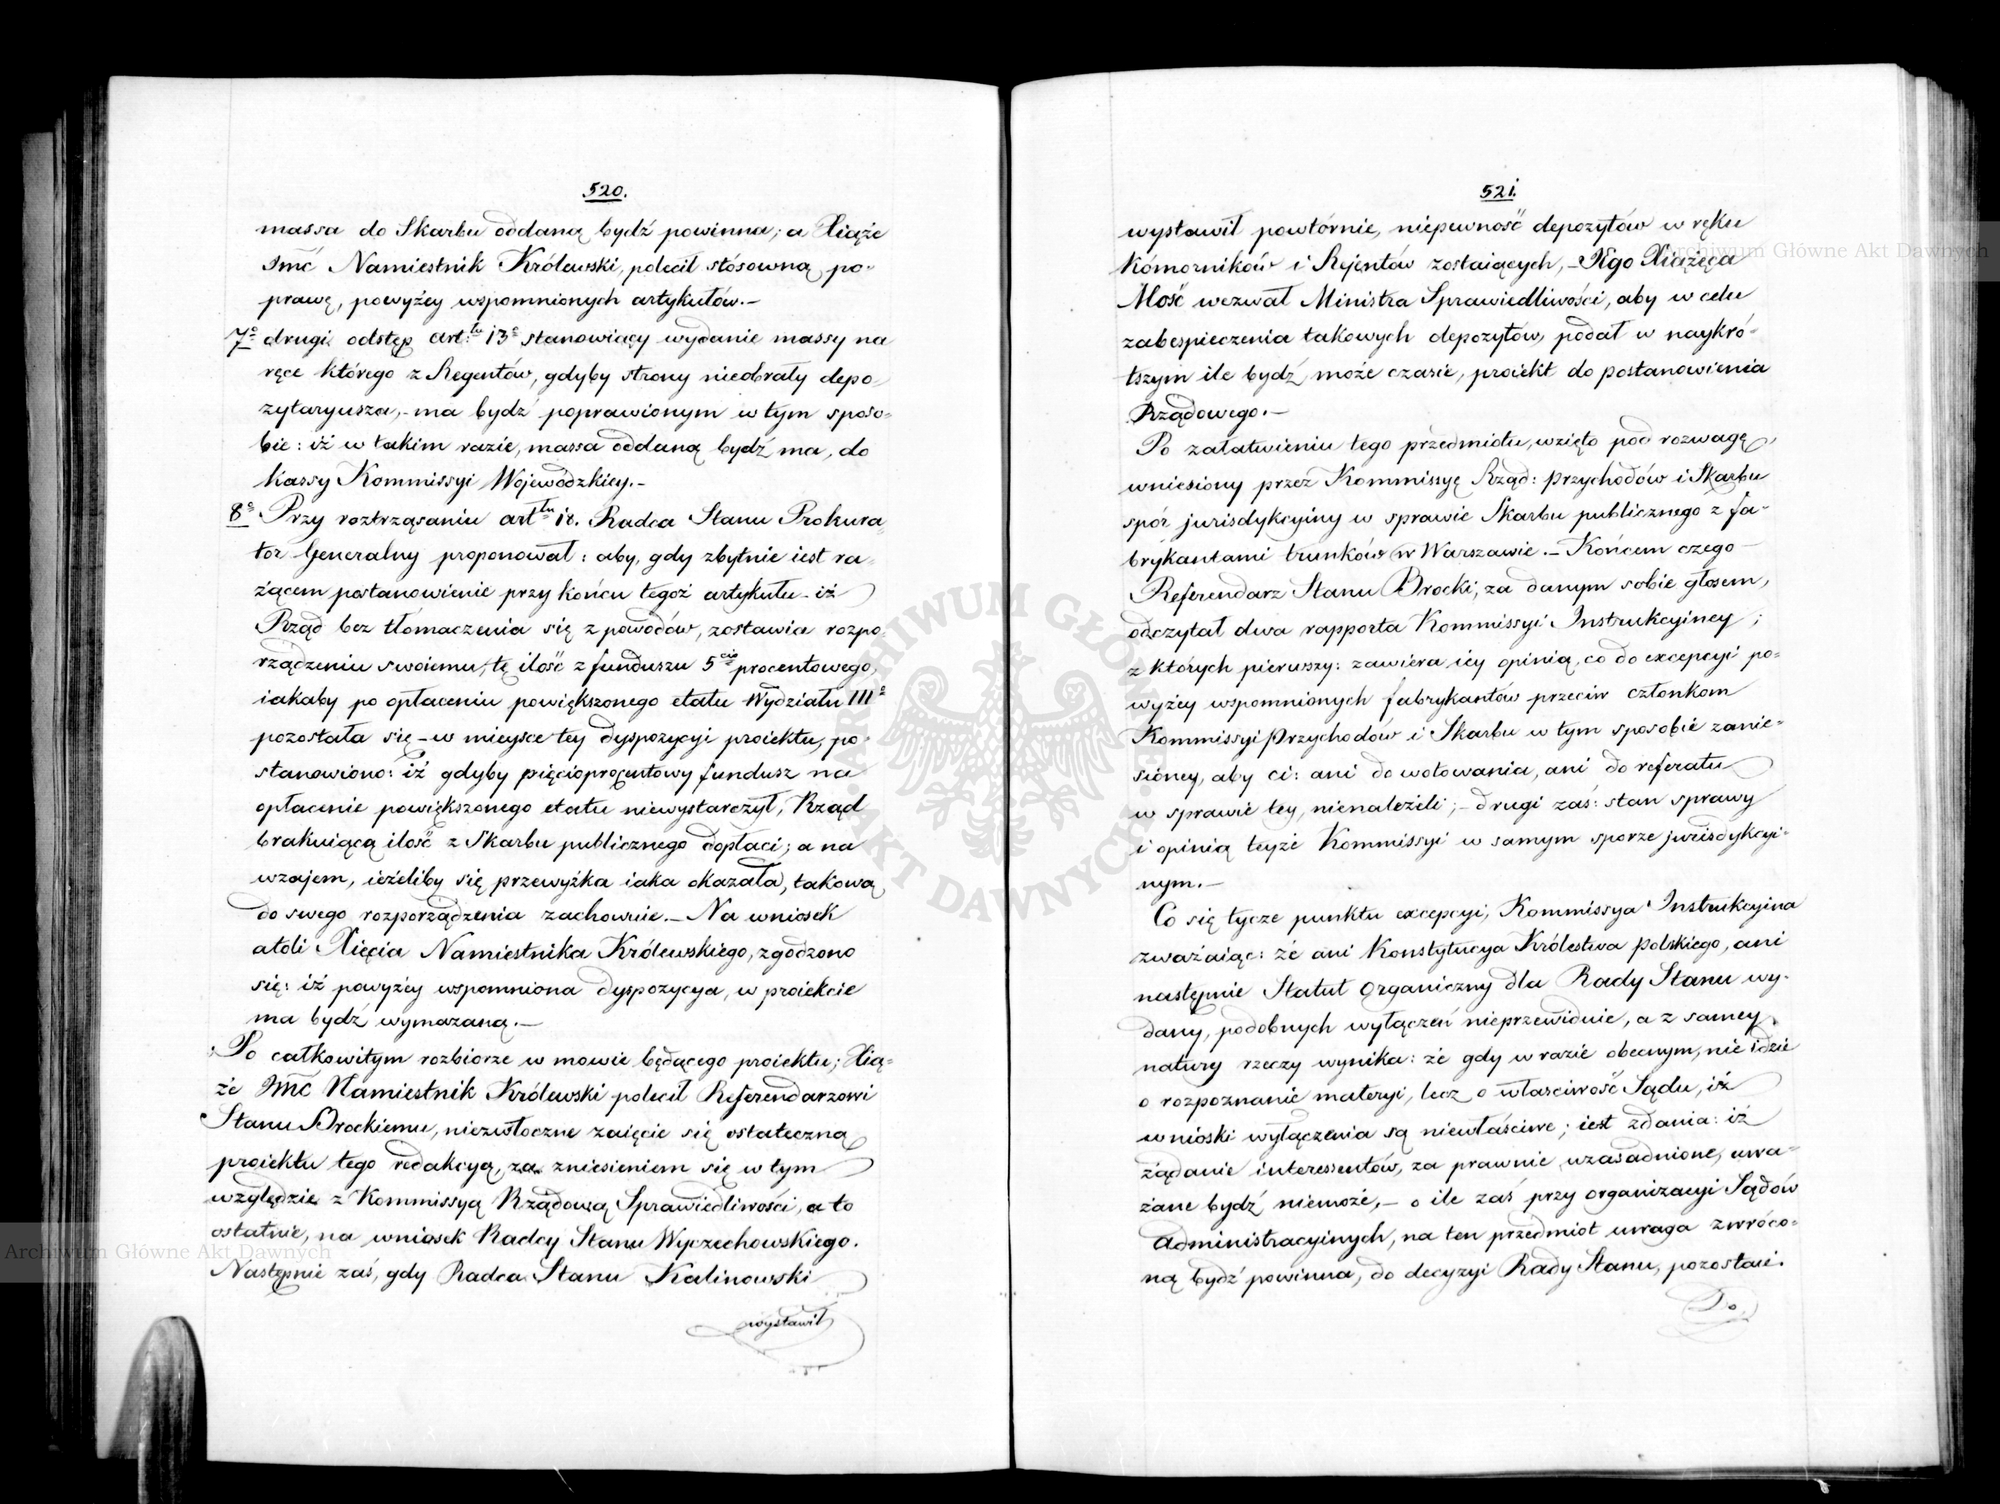 520.
massa do Skarbu oddaną bydź powinna; a Xiąże
Jmć Namiestnik Królewski, polecił stósowną po-
prawę, powyżey wspomnionych artykułów.-
7o drugi odstęp art:łu 13o stanowiący wydanie massy na
ręce którego z Regentów, gdyby strony nieobrały depo-
zytaryusza,- ma bydz poprawionym w tym sposo-
bie: iż w takim razie, massa oddaną bydź ma, do
kassy Kommissyi Wojewódzkiey.-
8o Przy roztrząsaniu art:łu 18. Radca Stanu Prokura-
tor Generalny proponował: aby, gdy zbytnie iest ra-
żącem postanowienie przy końcu tegoż artykułu - iż
Rząd bez tłómaczenia się z powodów, zostawia rozpo-
rządzeniu swoiemu, tę ilość z funduszu 5cio procentowego,
iakaby po opłaceniu powiększonego etatu Wydziału IIIo
pozostała się - w mieysce tey dyspozycyi proiektu, po-
stanowiono: iż gdyby pięcioprocentowy fundusz na
opłacenie powiększonego etatu niewystarczył, Rząd
brakuiącą ilość z Skarbu publicznego dopłaci; a na
wzajem, ieżeliby się przewyżka iaka okazała, takową
do swego rozporządzenia zachowuie.- Na wniosek
atoli Xięcia Namiestnika Królewskiego, zgodzono
się: iż powyżey wspomniona dyspozycya, w proiekcie
ma bydź wymazaną.-
Po całkowitym rozbiorze w mowie będącego proiektu; Xią-
że Jmć Namiestnik Królewski polecił Referendarzowi
Stanu Brockiemu, niezwłoczne zaięcie się ostateczną
proiektu tego redakcyą, za zniesieniem się w tym
względzie z Kommissyą Rządową Sprawiedliwości, a to
ostatnie, na wniosek Radcy Stanu Wyczechowskiego.
Następnie zaś, gdy Radca Stanu Kalinowski
wystawił
521.
wystawił powtórnie, niepewność depozytów w ręku
Kómorników i Rejentów zostaiących,- Jego Xiążęca
Mość wezwał Ministra Sprawiedliwości, aby w celu
zabespieczenia takowych depozytów, podał w naykró-
tszym ile bydź może czasie, proiekt do postanowienia
Rządowego.-
Po załatwieniu tego przedmiotu, wzięto pod rozwagę,
wniesiony przez Kommissyę Rząd: Przychodów i Skarbu
spór jurisdykcyiny w sprawie Skarbu publicznego z fa-
brykantami trunków w Warszawie.- Końcem czego
Referendarz Stanu Brocki, za danym sobie głosem,
odczytał dwa rapporta Kommissyi Instrukcyiney;
z których pierwszy: zawiera iey opinią, co do excepcyi po-
wyżey wspomnionych fabrykantów przeciw członkom
Kommissyi Przychodów i Skarbu w tym sposobie zanie-
sioney, aby ci: ani do wotowania, ani do referatu
w sprawie tey, nienależeli;- drugi zaś: stan sprawy
i opinią teyże Kommissyi w samym sporze jurisdykcyi-
nym.-
Co się tycze punktu excepcyi, Kommissya Instrukcyina
zważaiąc: że ani Konstytucya Królestwa Polskiego, ani
następnie Statut Organiczny dla Rady Stanu wy-
dany, podobnych wyłączeń nieprzewiduie, a z samey
natury rzeczy wynika: że gdy w razie obecnym, nie idzie
o rozpoznanie materyi, lecz o właściwość Sądu, iż
wnioski wyłączenia są niewłaściwe; iest zdania: iż
żądanie interessentów, za prawnie uzasadnione, uwa-
żane bydź niemoże,- o ile zaś przy organizacyi Sądów
Administracyinych, na ten przedmiot uwaga zwróco-
ną bydź powinna, do decyzyi Rady Stanu, pozostaie.
Do
ARCHIWUM GŁÓWNE AKT DAWNYCH
Archiwum Główne Akt Dawnych
Archiwum Główne Akt Dawnych